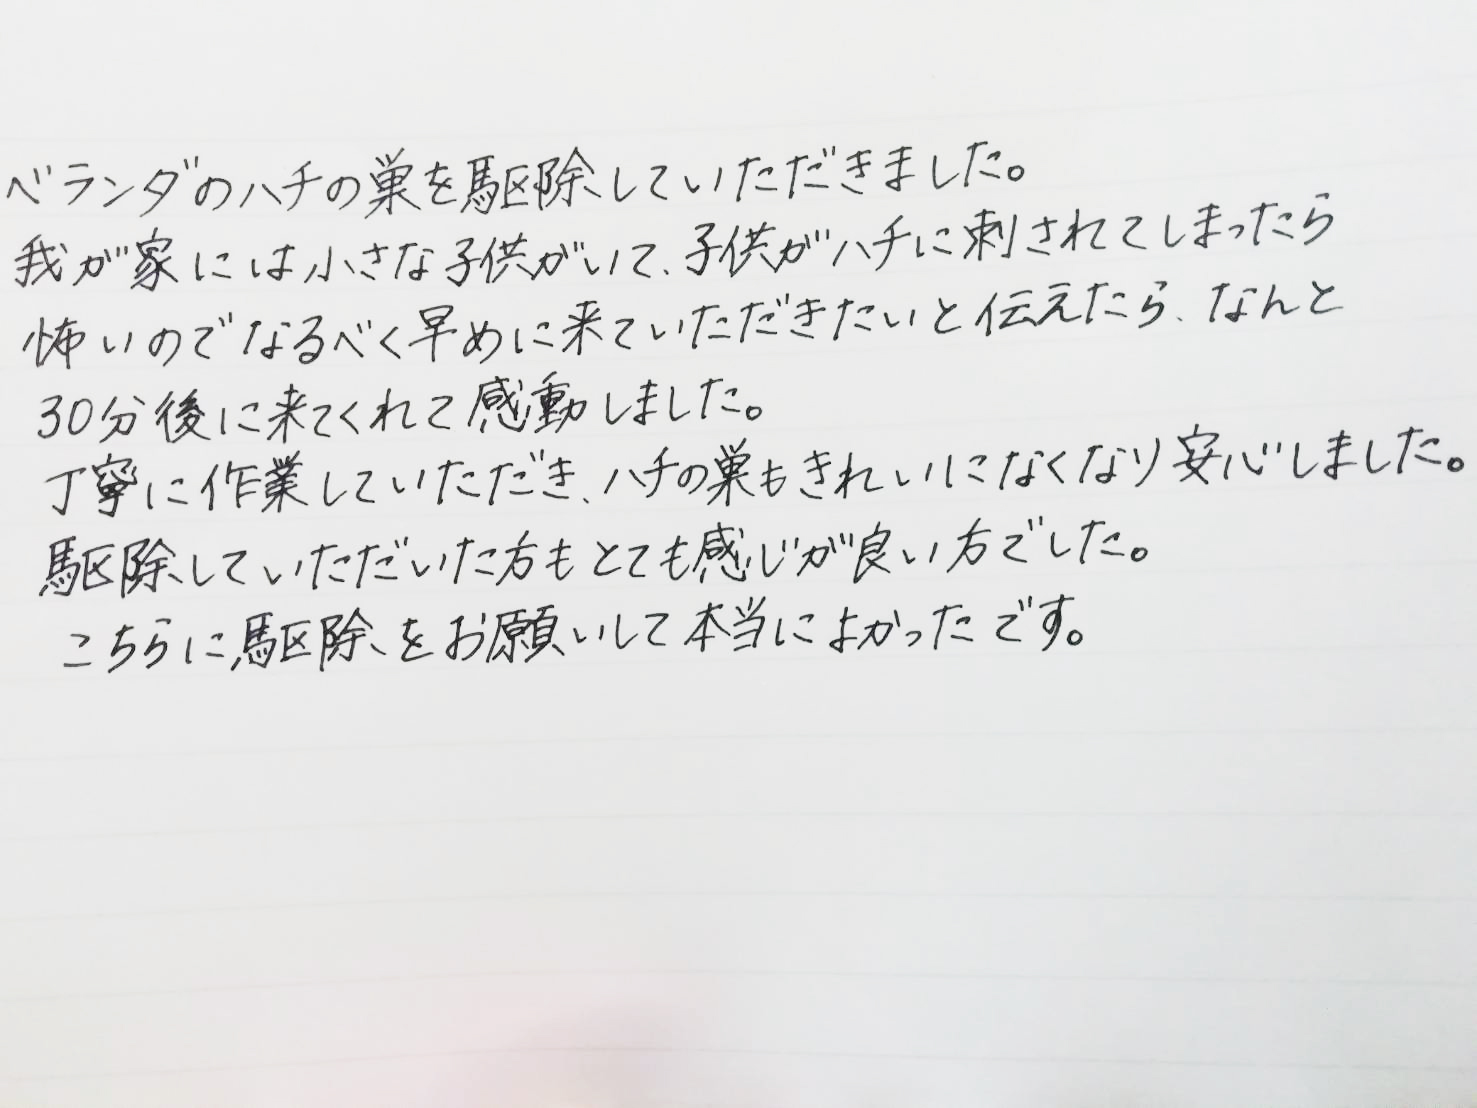 ベランダのハチの巣を駆除していただきました。
我が家には小さな子供がいて、子供がハチに刺されてしまったら
怖いのでなるべく早めに来ていただきたいと伝えたら、なんと
30分後に来てくれて感動しました。
丁寧に作業していただき、ハチの巣もきれいになくなり安心しました。
駆除していただいた方もとても感じが良い方でした。
こちらに駆除をお願いして本当によかったです。